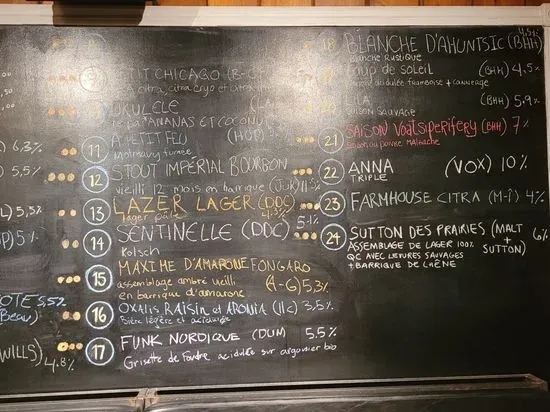 6,3%
5,5%
5%
OTE 5,5%
Beau)
WILLS)
4.8%
T CHICAGO (B-
citra, citra cryo et citra
UKULELE
ANANAS ET COCONU
11 A PETIT FEU (HOP)
fumée
12 STOUT IMPÉRIAL BOURBON
vieilli 12 mois en barrique
13 LAZER LAGER (DDC)
lager pâle 4.3%
14 SENTINELLE (DDC) 5.1%
Kölsch
15 MAXIME D'AMARONE FONGARO
assemblage ambré vieilli (A-G) 5,3%
en barrique d'amarone
16 OXALIS RAISIN et ARONIA 3,5%
Bière légère et acidulée
17 FUNK NORDIQUE (DUM) 5.5%
Grisette de Foudre acidulée sur argousier bio
18 BLANCHE D'AHUNTSIC (BHH) 4.5%
Blanche Rustique
oup DE SOLEIL (BHH) 4,5%
acidulée framboise + canneberge
LILA (BHH) 5.9%
SAISON SAUVAGE
21 SAISON VOATSIPERIFERY (BHH) 7%
Saison au poivre MALGACHE
22 ANNA (VOX) 10%
TRIPLE
23 FARMHOUSE CITRA (M-I) 4%
24 SUTTON DES PRAIRIES (MALT + SUTTON) 6%
ASSEMBLAGE DE LAGER 100%
QC AVEC LEVURES SAUVAGES
+ BARRIQUE DE CHÊNE